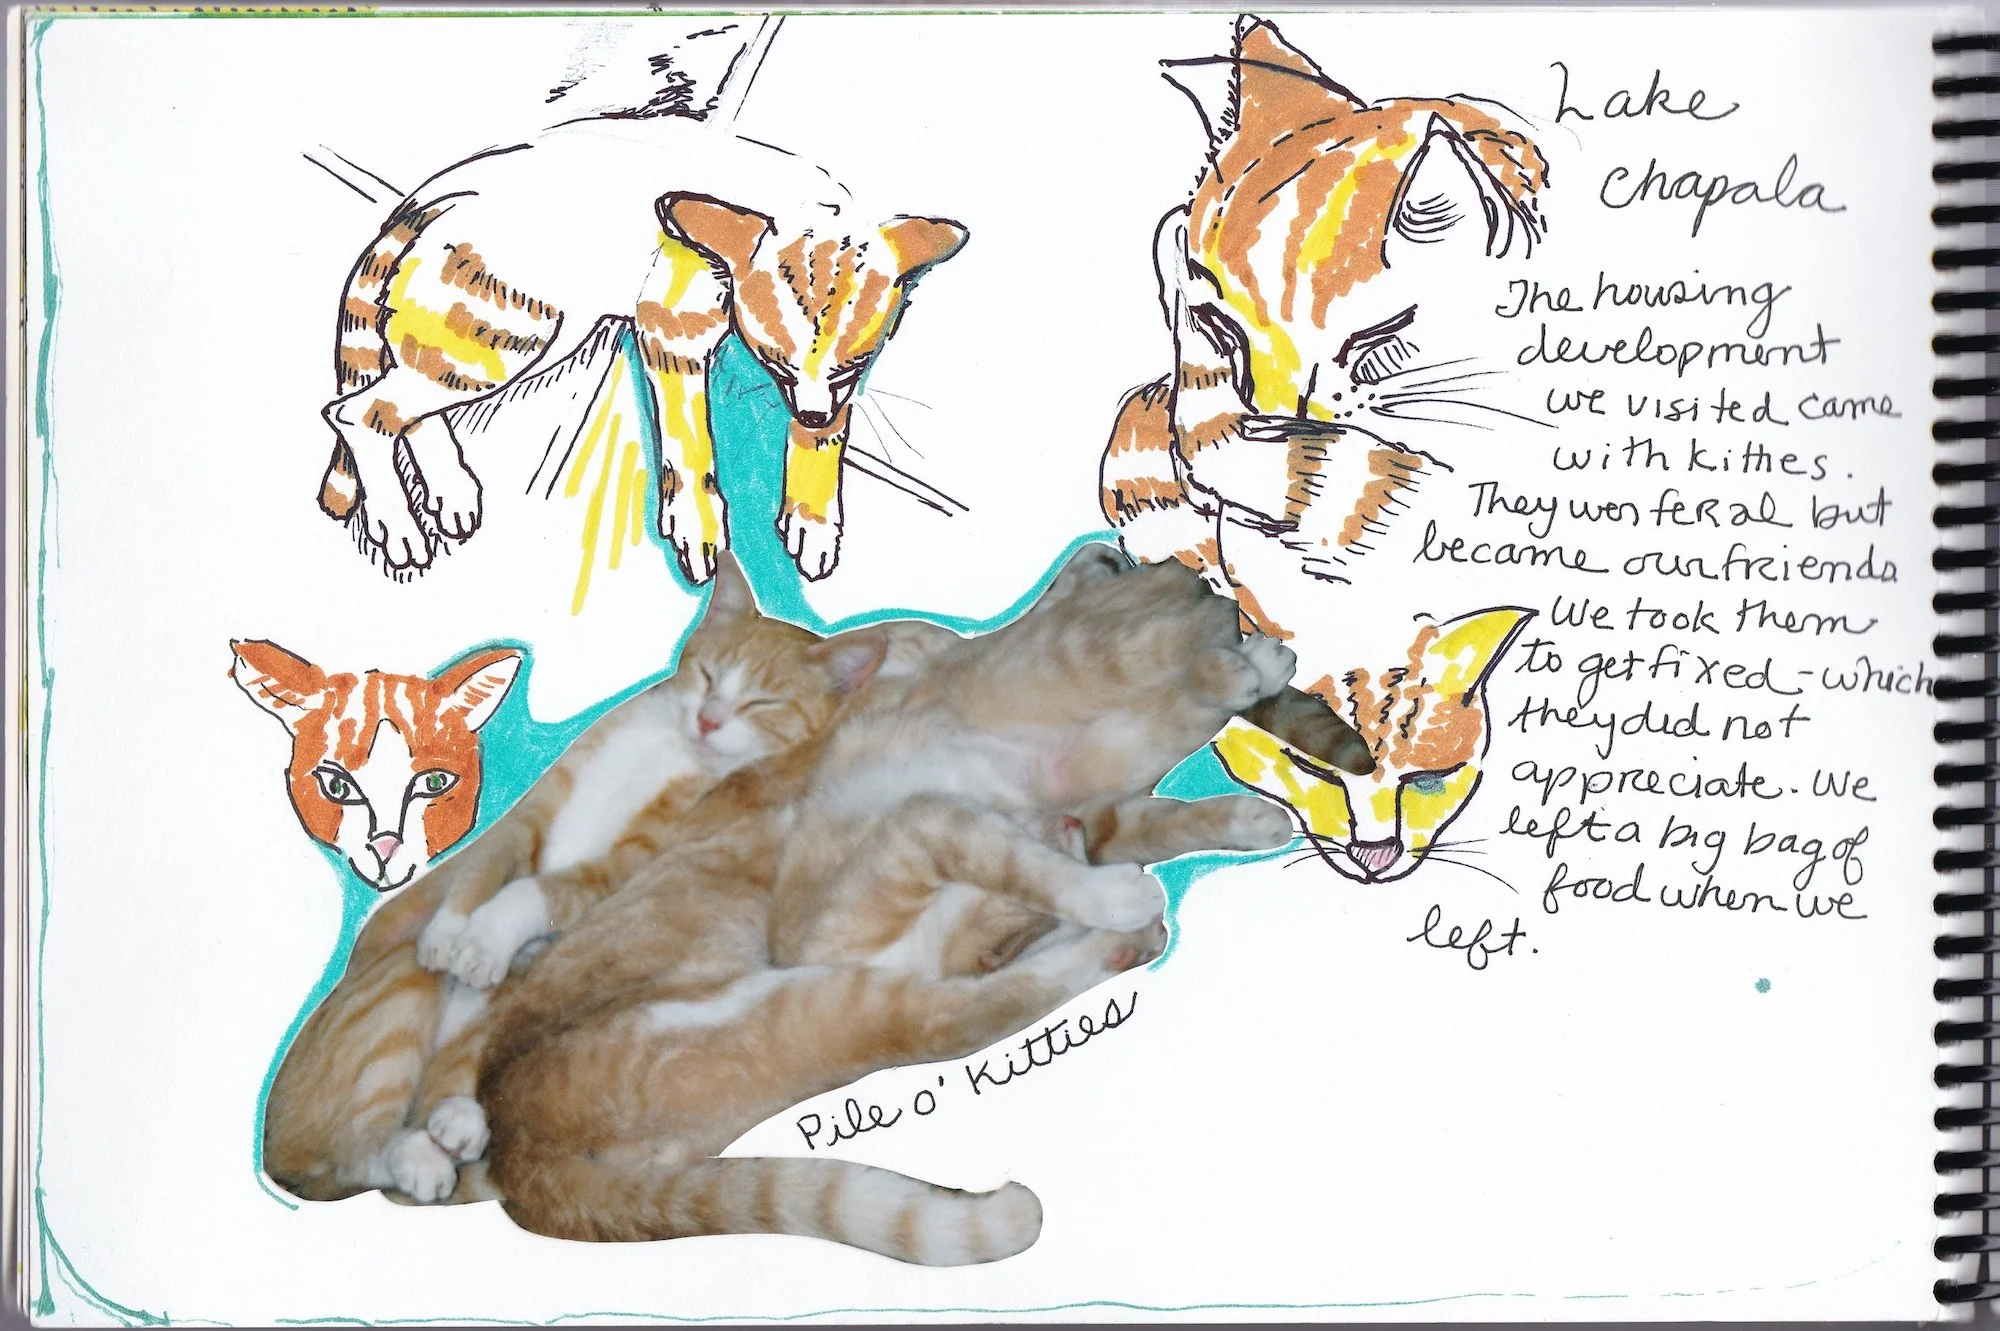 Lake
Chapala
The housing
development
we visited came
with kitties.
They wer feral but
became our friends
We took them
to get fixed - which
they did not
appreciate. We
left a big bag of
food when we
left.
Pile o' Kitties